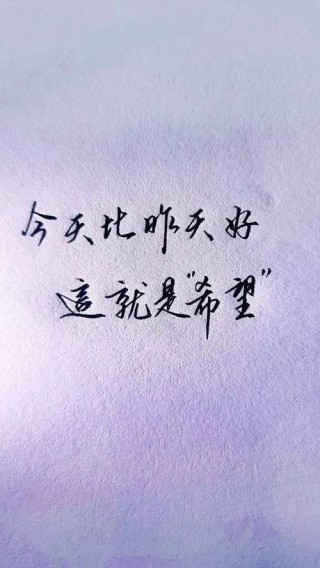 今天比昨天好
這就是“希望”